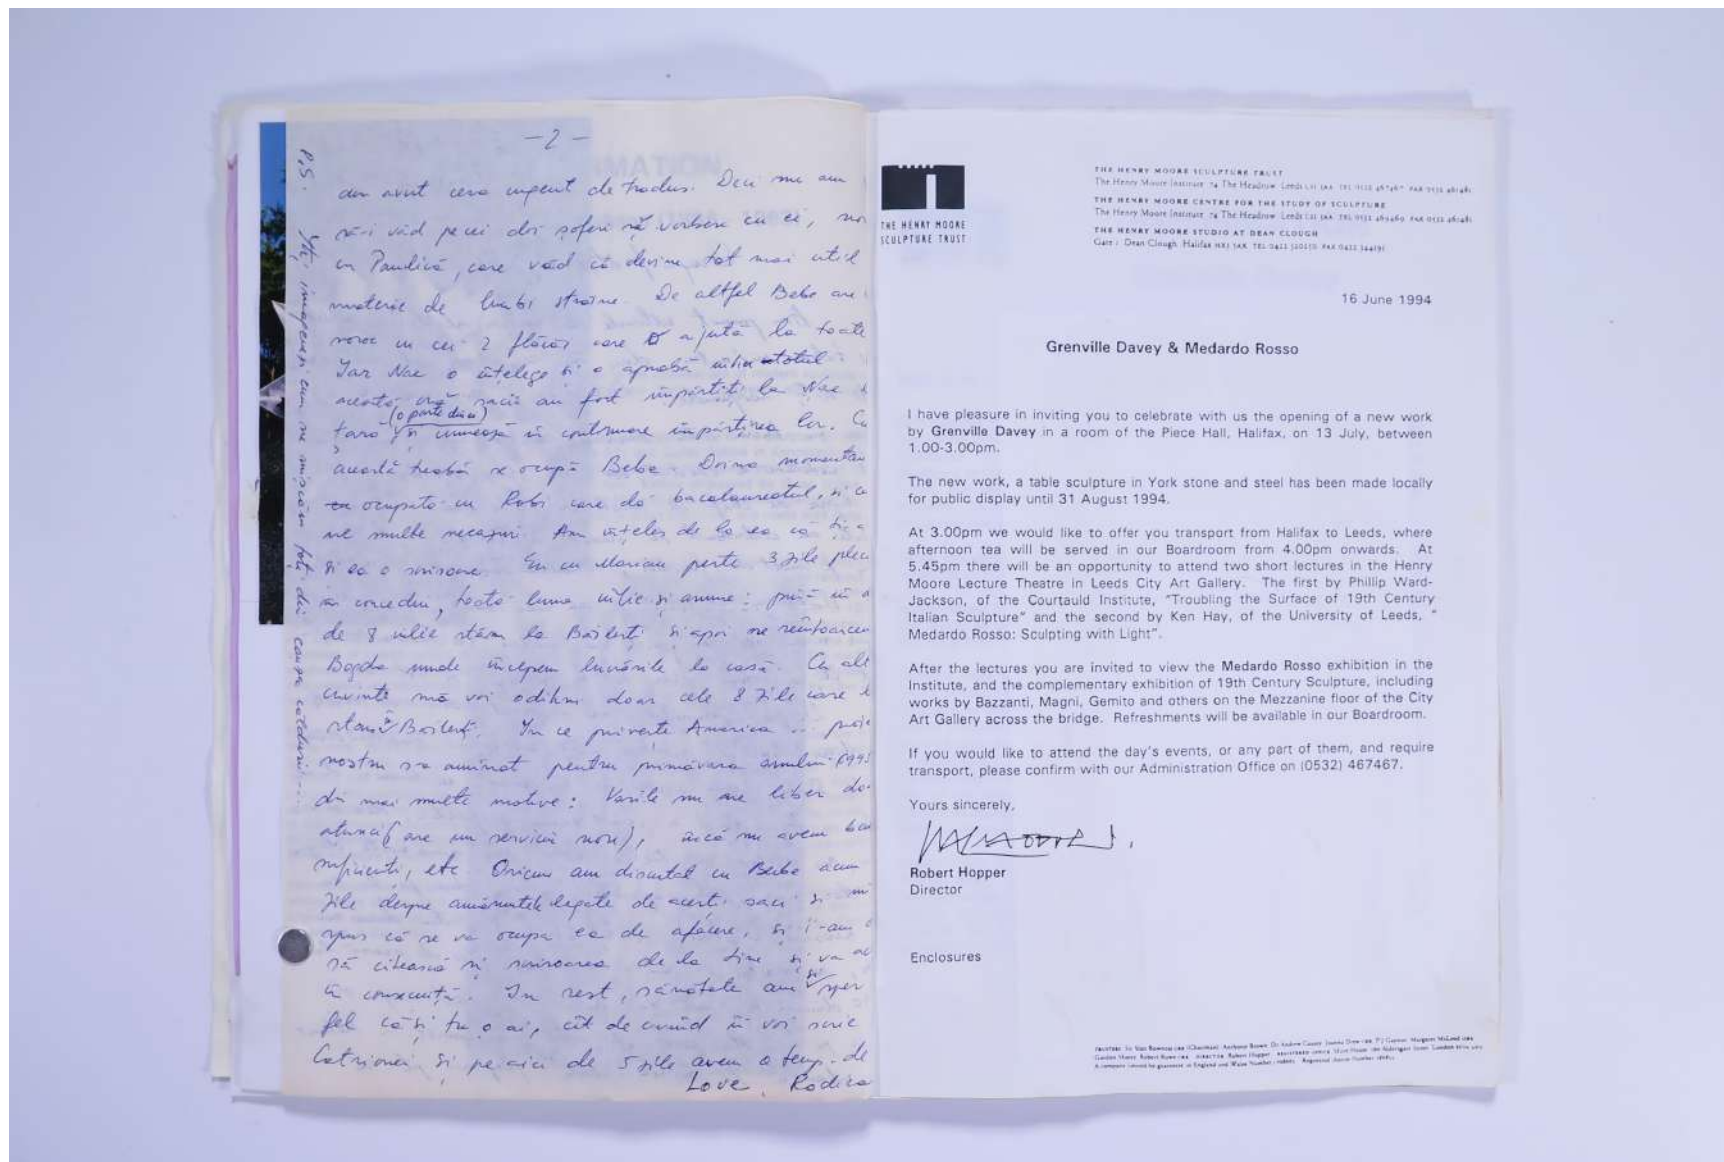 -2-
am avut ceva urgent de tradus. Deci nu am
să-i văd pe cei doi șoferi să vorbesc cu ei,
cu Paulică, care văd că devine tot mai util
materie de limbi străine. De altfel Bebe are
noroc cu cei 2 flăcăi care o ajută la toate
Iar Nae o înțelege și o aprobă
această saci au fost împărțiți la Nae
(o parte din ei)
țară și urmează în continuare împărțirea lor. Cu
această treabă se ocupă Bebe. Doina momentan
ocupată cu Robi care dă bacalaureatul, și
multe necazuri. Am înțeles de la ea că ți-a
și ea o scrisoare. Eu cu Marian peste 3 zile
în concediu, toată luna iulie și anume: până în
de 8 iulie stăm la Băilești și apoi ne reîntoarcem
Bogda unde începem lucrările la casă. Cu alte
cuvinte mă voi odihni doar cele 8 zile care
stăm Băilești. In ce privește America ...
nostru s-a amînat pentru primăvara anului 1995
din mai multe motive: Vasile nu are liber
atunci (are un serviciu nou), încă nu avem
suficienți, etc. Oricum am discutat cu Bebe acum
zile despre amănuntele legate de acești saci și
spus că se va ocupa ea de afacere, și i-am
să citească și scrisoarea de la tine și va
în consecință. In rest, sănătate am și sper
fel că și tu o ai, cît de curînd îi voi scrie
Catrionei. Și pe aici de 5 zile avem o temp. de
Love, Rodica
P.S. Îți imaginezi cum ne mișcăm toți din cauza căldurii....
THE HENRY MOORE
SCULPTURE TRUST
THE HENRY MOORE SCULPTURE TRUST
The Henry Moore Institute 74 The Headrow Leeds LS1 3AA TEL 0532 467467 FAX 0532 461481
THE HENRY MOORE CENTRE FOR THE STUDY OF SCULPTURE
The Henry Moore Institute 74 The Headrow Leeds LS1 3AA TEL 0532 469469 FAX 0532 461481
THE HENRY MOORE STUDIO AT DEAN CLOUGH
Gate 1 Dean Clough Halifax HX3 5AX TEL 0422 320250
16 June 1994
Grenville Davey & Medardo Rosso
I have pleasure in inviting you to celebrate with us the opening of a new work
by Grenville Davey in a room of the Piece Hall, Halifax, on 13 July, between
1.00-3.00pm.
The new work, a table sculpture in York stone and steel has been made locally
for public display until 31 August 1994.
At 3.00pm we would like to offer you transport from Halifax to Leeds, where
afternoon tea will be served in our Boardroom from 4.00pm onwards. At
5.45pm there will be an opportunity to attend two short lectures in the Henry
Moore Lecture Theatre in Leeds City Art Gallery. The first by Phillip Ward-
Jackson, of the Courtauld Institute, "Troubling the Surface of 19th Century
Italian Sculpture" and the second by Ken Hay, of the University of Leeds, "
Medardo Rosso: Sculpting with Light".
After the lectures you are invited to view the Medardo Rosso exhibition in the
Institute, and the complementary exhibition of 19th Century Sculpture, including
works by Bazzanti, Magni, Gemito and others on the Mezzanine floor of the City
Art Gallery across the bridge. Refreshments will be available in our Boardroom.
If you would like to attend the day's events, or any part of them, and require
transport, please confirm with our Administration Office on (0532) 467467.
Yours sincerely,
Robert Hopper
Director
Enclosures